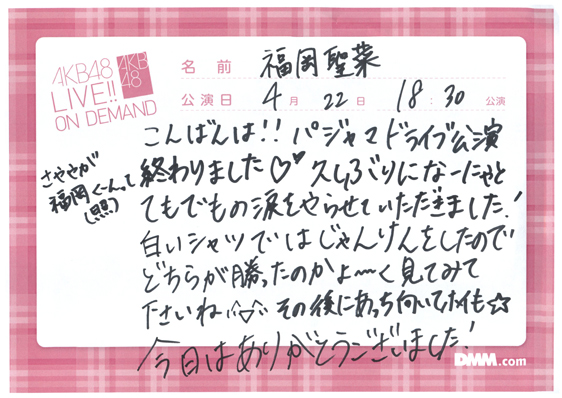 AKB48
LIVE!!
ON DEMAND
AKB
48
名前 福岡聖菜
公演日 4月22日 18:30 公演
こんばんは!! パジャマドライブ公演
終わりました♡♡ 久しぶりになーにゃと
てもでもの涙をやらせていただきました!
白いシャツではじゃんけんをしたので
どちらが勝ったのかよ〜く見てみて
下さいね その後にあっち向いてホイも☆
今日はありがとうございました!
さややが
福岡くーんって
(照)
DMM.com